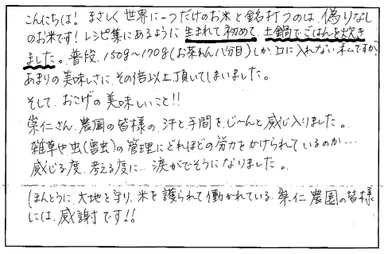 こんにちは! まさしく世界に一つだけのお米と銘打つのは、偽りなし
のお米です! レシピ集にあるように 生まれて初めて、土鍋でごはんを炊き
ました。普段、150g〜170g(お茶わん八分目)しか、口に入れない私ですが、
あまりの美味しさに、その倍以上頂してしまいました。
そして、おこげの美味しいこと!!
崇仁さん、農園の皆様の、汗と手間をじ〜んと感じ入りました。
雑草や虫(害虫)の管理にどれほどの労力をかけられているのか…
感じる度、考える度に…涙がでそうになりました。
ほんとうに、大地を守り、米を護られて働かれている、崇仁農園の皆様
には、感謝です!!